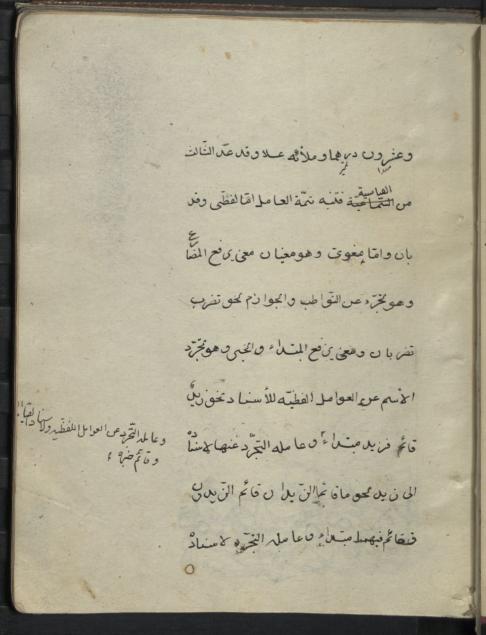 وعشرون درهما وملأئه عسلا وقد عدّ الثالث
القياسية
من السّماعيّة فتنبه تتمّة العامل امّا لفظى وقد
بان وامّا معنوى وهو معنيان معنى يرفع المضا
وهو تجرّده عن النّواصب والجوازم نحو تضرب
تضربان ومعنى يرفع المبتداء والخبر وهو تجرّد
الاسم عن العوامل اللفظيّة للأسناد نحو زيدٌ
قائم فزيد مبتداء وعامله التجرّد عنها لاسنادٌ
الى زيد نحو ما قائم الزّيدان قائم الزّيدون
فقائم فيهما مبتداء وعامله التجرّد لاسنادٌ
وعامله التّجرّد عن العوامل اللفظيّه ولاسناد
وقائم خبره